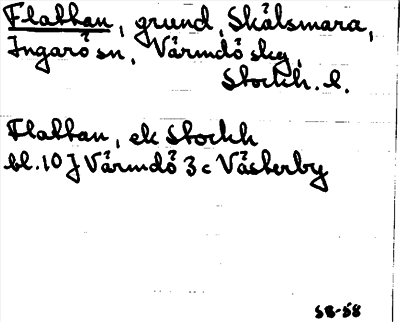 Flatban, grund, Skälsmara,
Ingarö sn, Värmdö skg,
Stockh. l.
Flatban, ek Stockh
bl. 10 J Värmdö 3 c Västerby
S8-58